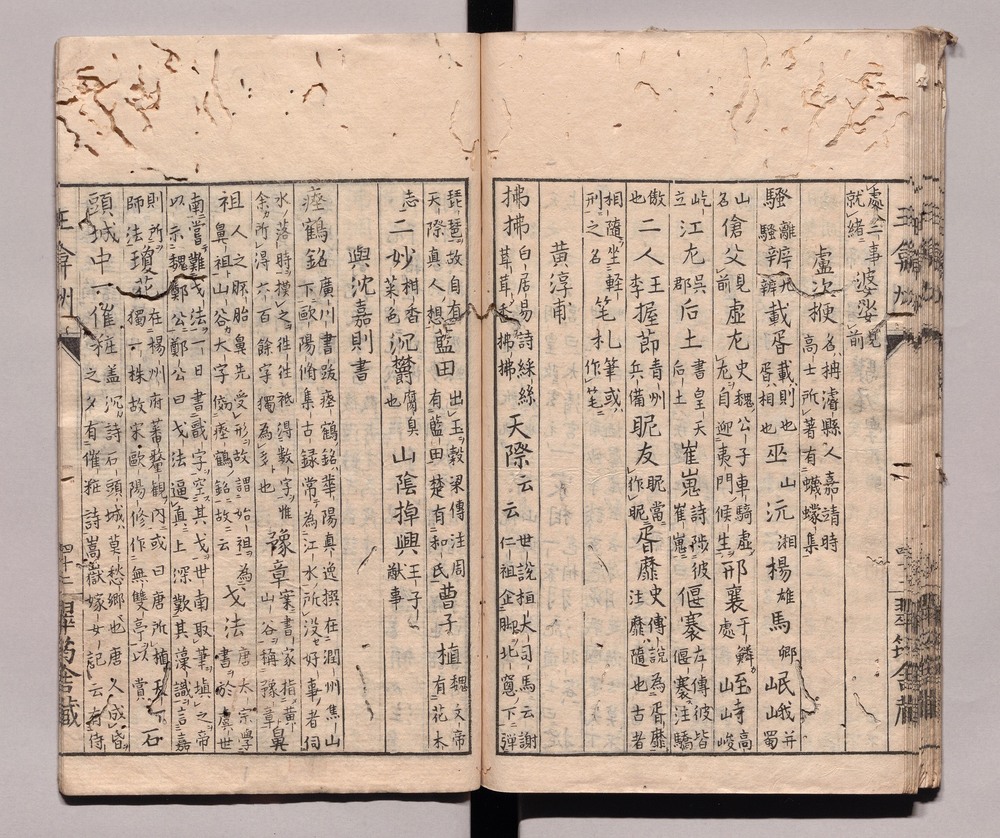 處、三事 波娑 見前
就緒
盧次楩 名楠濬縣人嘉請時高士所著有蠛蠓集
騷 離騷 辨 九辨 載胥 載則也胥相也 巫山沅湘楊雄馬卿岷峨 并蜀
山名 傖父 見前 虛左 史魏公子車騎虛左自迎夷門候生 邢襄 于鱗處 至山寺 高山峻
屹立 江左 吳郡 后土 書皇天后土 崔嵬 詩陟彼崔嵬 偃蹇 左傳彼皆偃蹇注驕
傲 二人 王李 握節 青州兵備 昵友 昵當作昵 胥靡 史傳說為胥靡注靡隨也古者
相隨坐輕刑之名 笔札 筆或作笔
黃淳甫
拂拂 白居易詩綵絲茸茸香拂拂 天際云云 世說桓大司馬云謝仁祖企脚北窻下彈
琵琶故自有天際真人想 藍田 出玉穀梁傳注周有藍田楚有和氏 曹子植 魏文帝有花木
志 二妙 柑香菜色 沉欝 腐臭也 山陰掉興 王子猷事
與沈嘉則書
瘞鶴銘 廣川書跋瘞鶴銘華陽真逸撰在潤州焦山下歐陽脩集古録常為江水所没好事者伺
水落時摸之徃徃祗得數字惟余所得六百餘字獨為多也 豫章 案書家指黃山谷稱豫章 鼻
祖 人之胚胎鼻先受形故謂始祖為鼻祖山谷大字倣瘞鶴銘故云 戈法 唐太宗學書於虞世
南嘗難戈法一日書戩字空其戈世南取筆塡之帝以示魏鄭公鄭公曰戈法逼真上深歎其藻識言嘉
則所師法 瓊花 在楊州府蕃釐觀内或曰唐所植天下獨一株故宋歐陽修作無雙亭以賞 石
頭城中一催粧 盖沉詩石頭城莫愁鄉也唐人成昏之夕有催粧詩嵩嶽嫁女記云有侍
翠筠舍藏